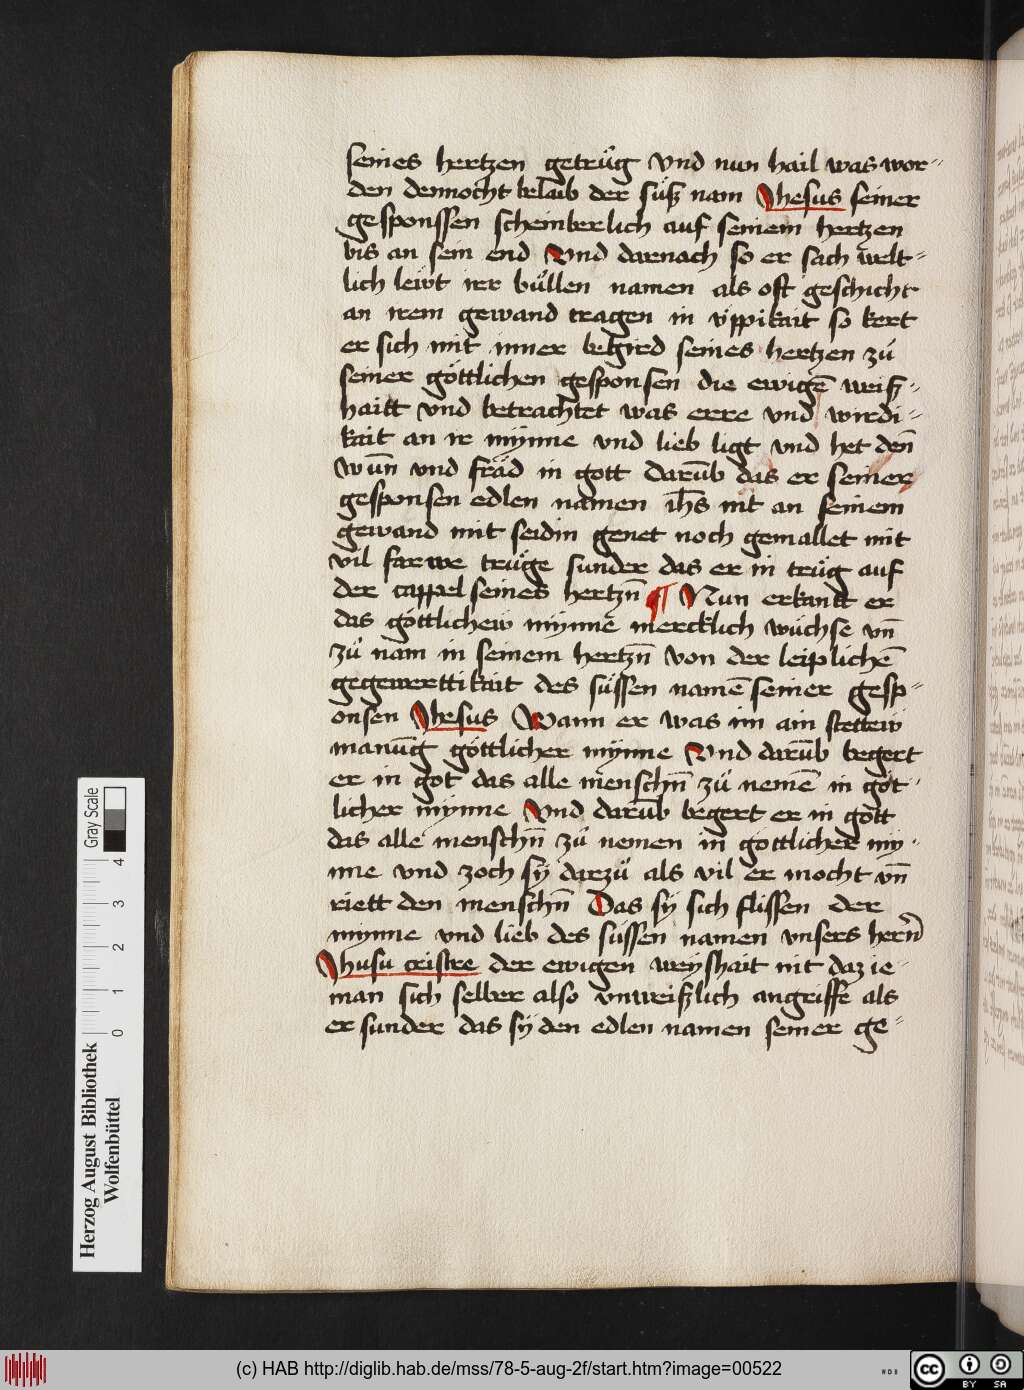 seines hertzen getrůg vnd nun hail was wor-
den dennocht belaib der süß nam Jhesus seiner
gesponssen scheinberlich auf seinem hertzen
bis an sein end Vnd darnach so er sach welt-
lich lewt irer bůllen namen als oft geschicht
an irem gewand tragen in v̈ppikait so kert
er sich mit inner begird seines hertzen zů
seiner göttlichen gesponsen die ewigē weiß-
haitt vnd betrachtet was erre vnd wirdi-
kait an ir mÿnne vnd lieb ligt vnd het deñ
wun̄ vnd fräd in gott darūb das er seiner
gesponsen edlen namen ih̄s nit an seinem
gewand mit seidin genet noch gemallet mit
vil farwe trůge sunder das er in trůg auf
der cappel seines hertzn̄ ¶ Nun erkantt er
das göttlichew mÿnne mercklich wüchse vn̄
zů nam in seinem hertzn̄ von der leiplichē
gegewerttikait des süssen namē seiner gesp-
onsen Jhesus Wann er was im ain stettew
manūg göttlicher mÿnne Vnd darūb begert
er in got das alle menschn̄ zů nemē in göt-
licher mÿnne Vnd darūb begert er in gott
das alle menschn̄ zů nemen in gottlicher mÿ-
nne vnd zoch sÿ darzů als vil er mocht vn̄
riett den menschn̄ Das sÿ sich flissen der
mynne vnd lieb des süssen namen vnsers hern̄
Jhusu cristre der ewigen weÿshait nit daz ie-
man sich selber also vnweißlich angriffe als
er sunder das sÿ den edlen namen seiner ge-
Herzog August Bibliothek
Wolfenbüttel
0 1 2 3 4
Gray Scale
(c) HAB http://diglib.hab.de/mss/78-5-aug-2f/start.htm?image=00522
WDB
cc BY SA